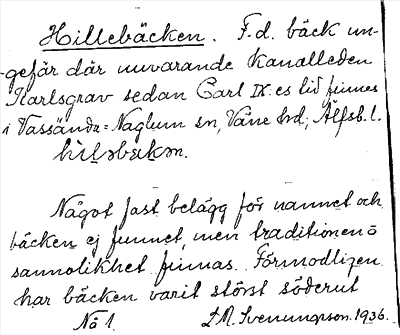 Hillebäcken. F.d. bäck un-
gefär där nuvarande kanalleden
Karlsgrav sedan Carl IX:es tid finnes
i Vassända=Naglum sn, Väne hd, Älfsb.l.
Något fast belägg för namnet och
bäcken ej funnet, men traditionen o
sannolikhet finnas. Förmodligen
har bäcken varit störst söderut
No 1. Svenungsson. 1936.